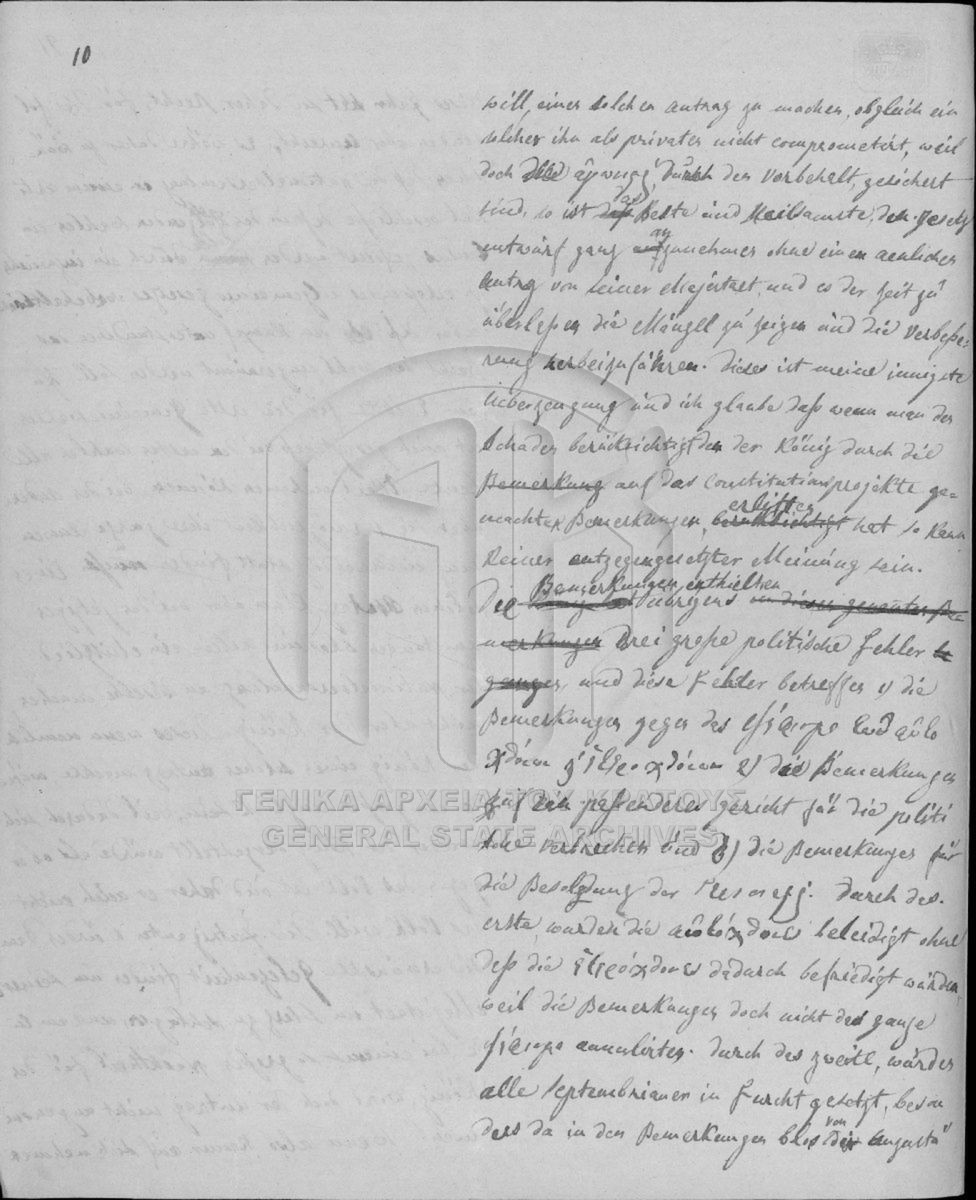 10
will, einen solchen antrag zu machen, obgleich ein
solcher ihn als privaten nicht compromotirt, weil
doch durch den Vorbehalt, gesichert
sind, so ist das beste und Heilsamste, den gesetz
entwurf ganz anzunehmen ohne einen aenlichen
antrag von seiner Majestaet, und es der Zeit zu
überlaßen die Mängel zu zeigen und die Verbeße-
rung herbeizuführen. dieses ist meine innigste
Ueberzeugung und ich glaube daß wenn man den
Schaden berüksichtigt den der König durch die
Bemerkung auf das Constitutionsprojekte ge-
machten Bemerkungen, erlitten berüksichtigt hat so kann
keiner entgegengesetzter Meinung sein.
Die Bemerkungen enthielten übrigens
drei große politische Fehler
und diese Fehler betreffen 1) die
Bemerkungen gegen das ψήφισμα τῶν αὐτο
χθόνων ἑτεροχθόνων 2) die Bemerkungen
auf ein paßenderes gericht für die politi
sche Verbrechen und 3) die Bemerkungen für
die Besoldung der Γερουσ. durch das
erste, wurden die αὐτόχθονες beleidigt ohne
daß die ἑτερόχθονες dadurch befriedigt würden,
weil die Bemerkungen doch nicht das ganze
ψήφισμα annulirten. durch das zweite, wurden
alle Septembrianer in Furcht gesetzt, beson
ders da in den Bemerkungen blos von
ΓΕΝΙΚΑ ΑΡΧΕΙΑ ΤΟΥ ΚΡΑΤΟΥΣ
GENERAL STATE ARCHIVES